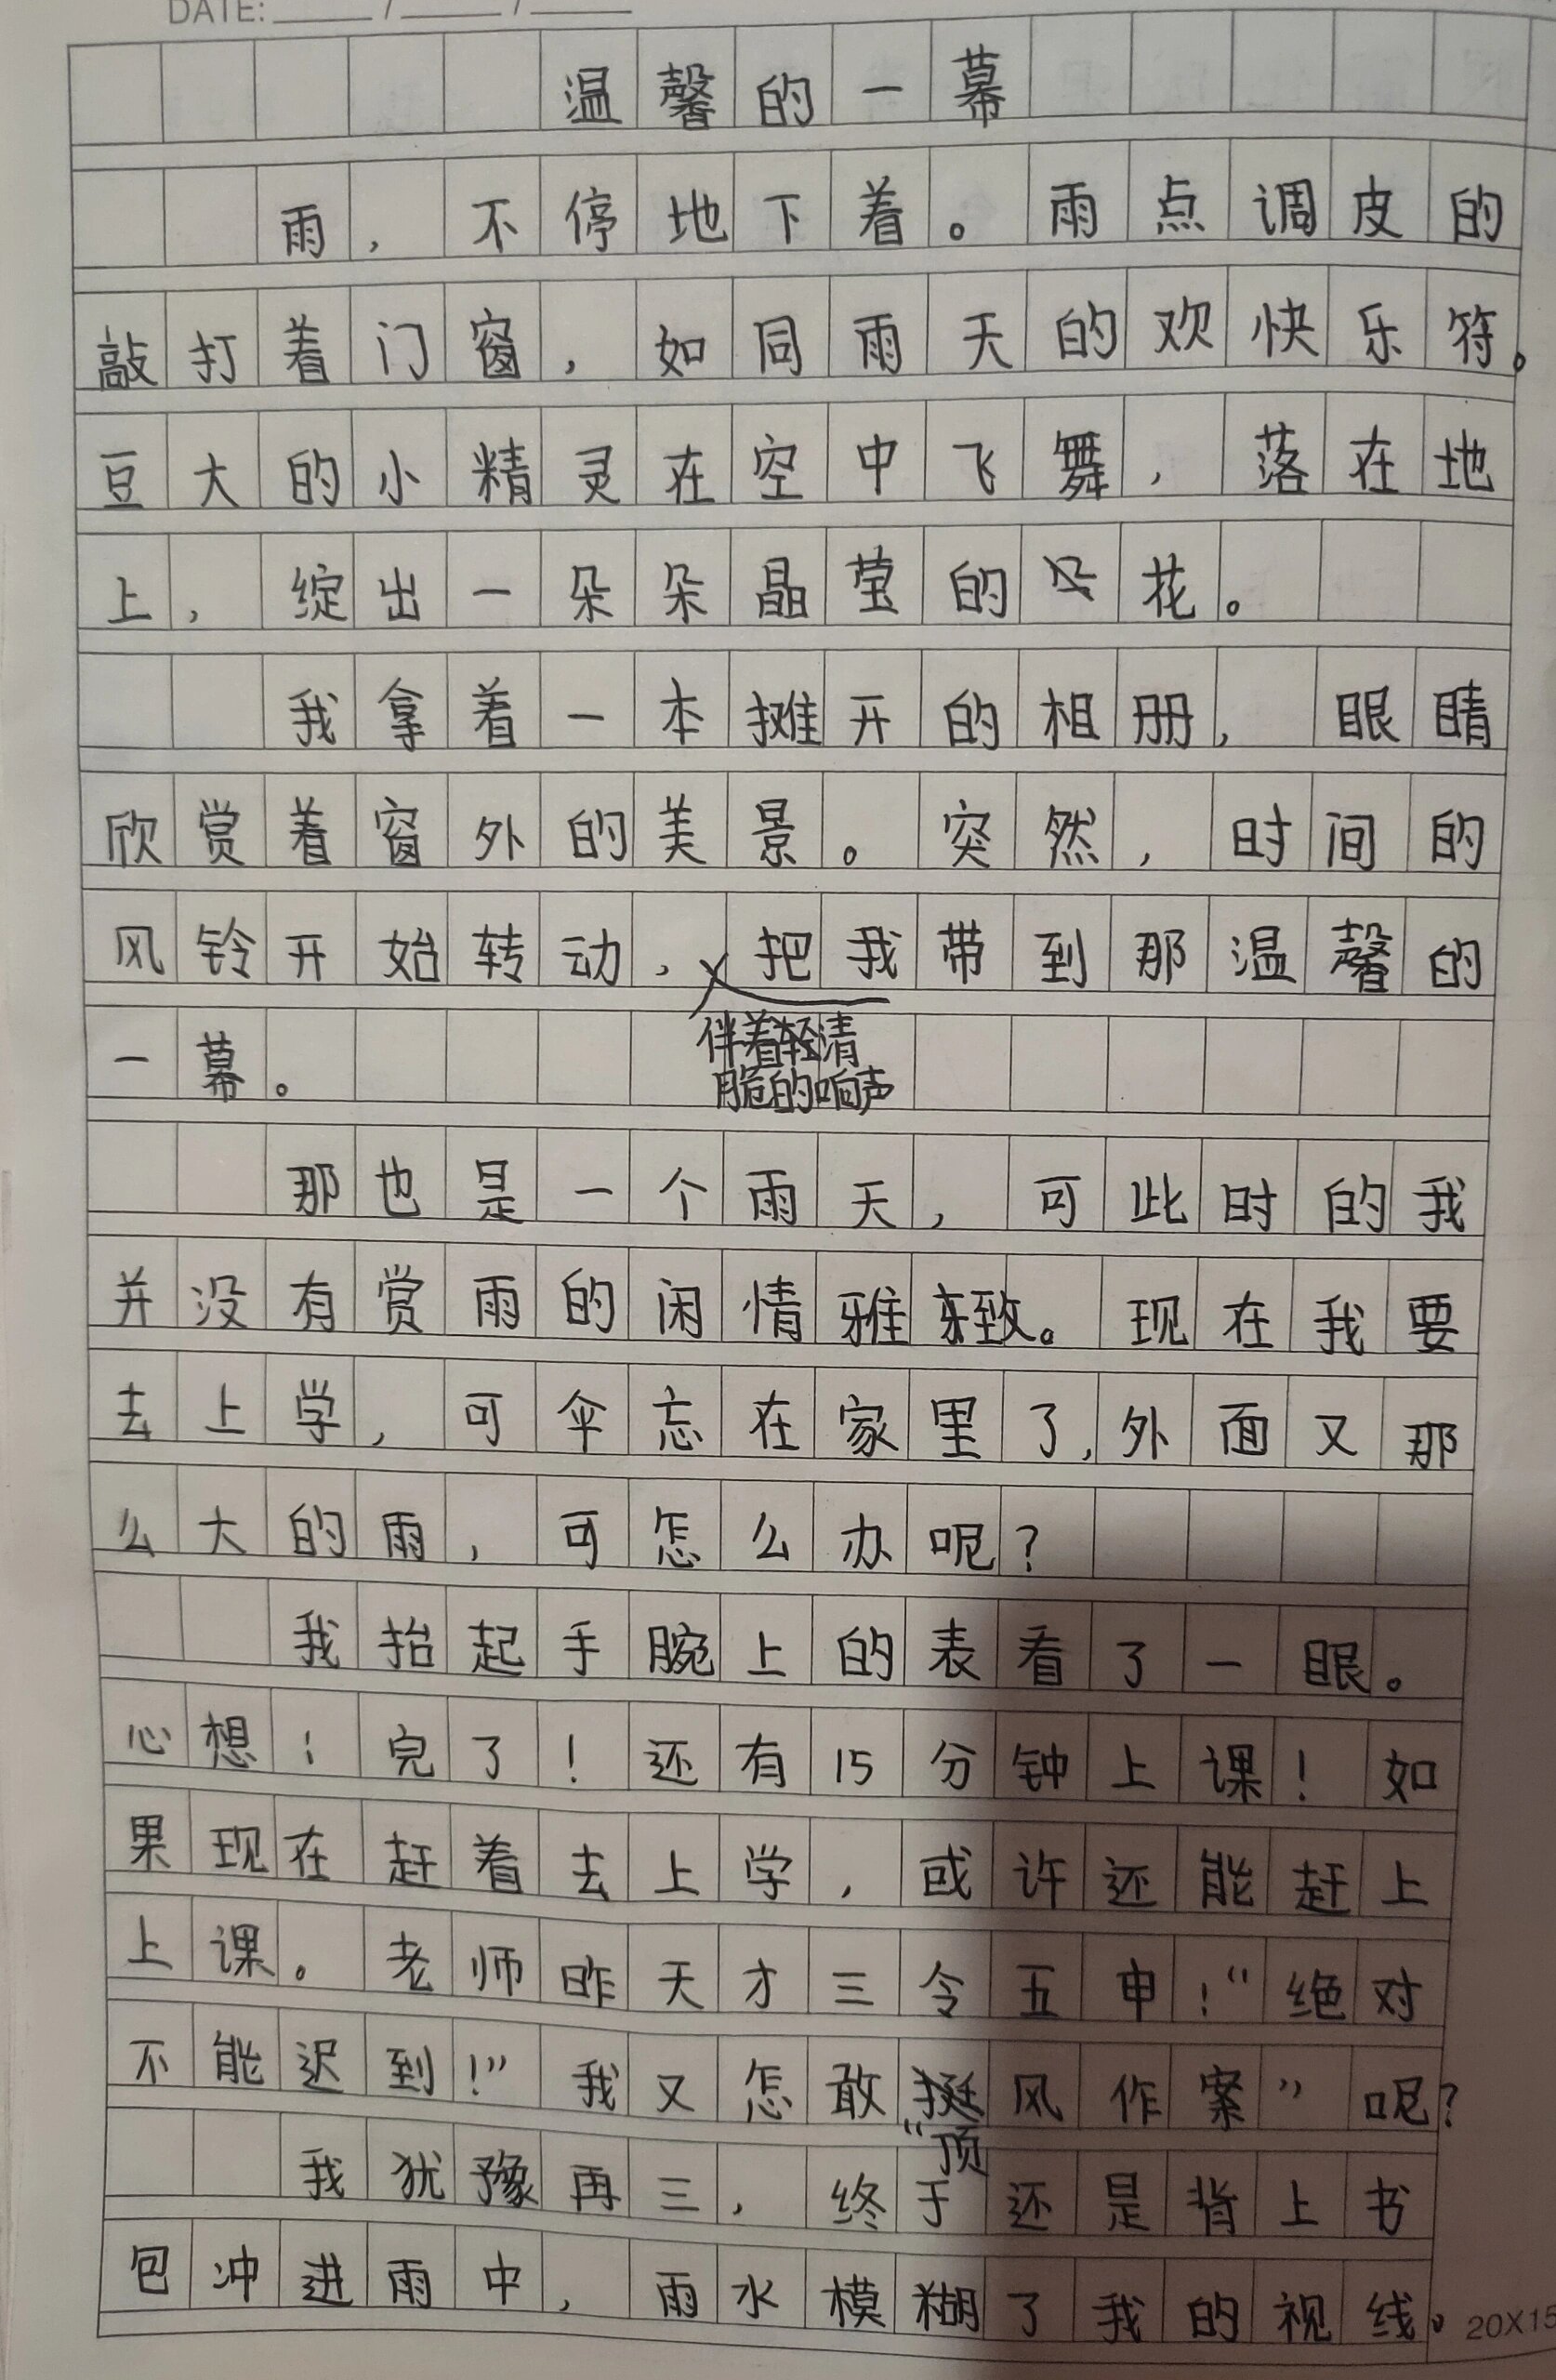 DATE: ____ / ____ / ____
温馨的一幕
雨，不停地下着。雨点调皮的
敲打着门窗，如同雨天的欢快乐符。
豆大的小精灵在空中飞舞，落在地
上，绽出一朵朵晶莹的花。
我拿着一本摊开的相册，眼睛
欣赏着窗外的美景。突然，时间的
风铃开始转动，把我带到那温馨的
伴着轻清
脆的响声
一幕。
那也是一个雨天，可此时的我
并没有赏雨的闲情雅致。现在我要
去上学，可伞忘在家里了，外面又那
么大的雨，可怎么办呢？
我抬起手腕上的表看了一眼。
心想：完了！还有15分钟上课！如
果现在赶着去上学，或许还能赶上
上课。老师昨天才三令五申：“绝对
不能迟到！”我又怎敢“顶风作案”呢？
我犹豫再三，终于还是背上书
包冲进雨中，雨水模糊了我的视线。
20X15